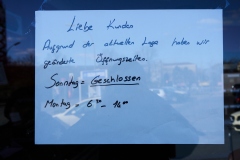 Liebe Kunden
Aufgrund der aktuellen Lage haben wir
geänderte Öffnungszeiten.
Sonntag = Geschlossen
Montag = 6³⁰ - 14⁰⁰